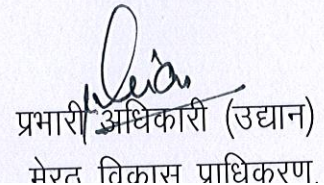 प्रभारी अधिकारी (उद्यान)
मेरठ विकास प्राधिकरण,